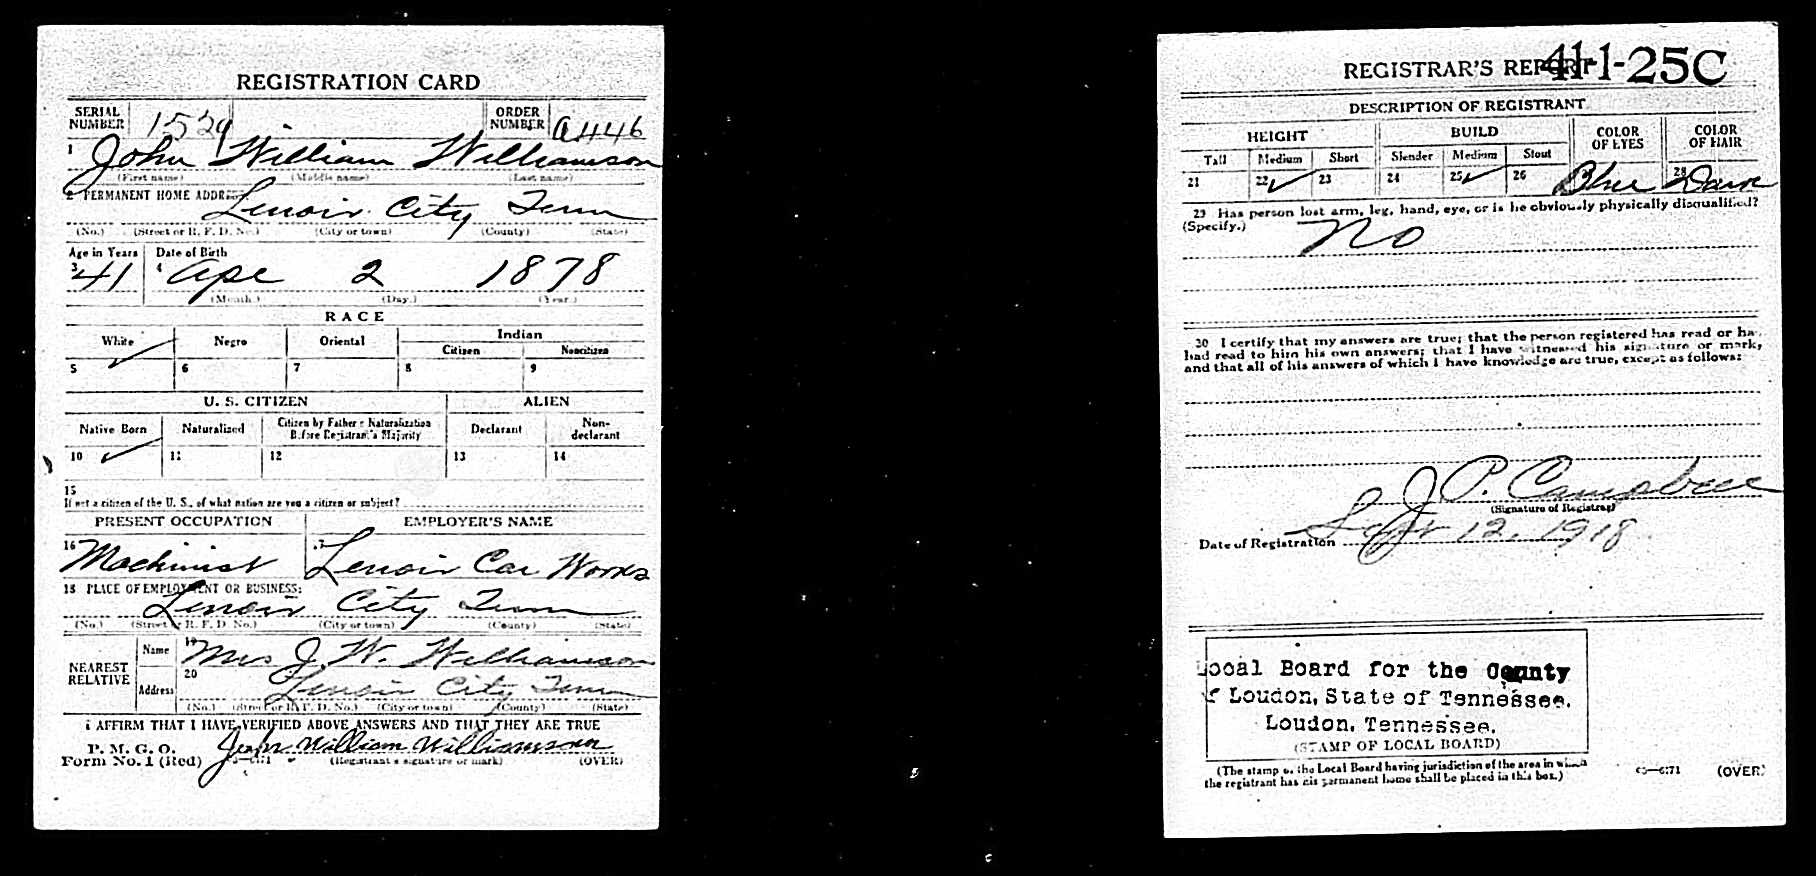 REGISTRATION CARD
SERIAL NUMBER 1529 ORDER NUMBER A446
1 John William Williamson
(First name) (Middle name) (Last name)
2 PERMANENT HOME ADDRESS:
Lenoir City Tenn
(No.) (Street or R. F. D. No.) (City or town) (County) (State)
Age in Years Date of Birth
3 41 4 Apr 2 1878
(Month.) (Day.) (Year.)
RACE
White Negro Oriental Indian
Citizen Noncitizen
5 ✓ 6 7 8 9
U. S. CITIZEN ALIEN
Native Born Naturalized Citizen by Father's Naturalization Before Registrant's Majority Declarant Non-declarant
10 ✓ 11 12 13 14
15
If not a citizen of the U. S., of what nation are you a citizen or subject?
PRESENT OCCUPATION EMPLOYER'S NAME
16 Machinist 17 Lenoir Car Works
18 PLACE OF EMPLOYMENT OR BUSINESS:
Lenoir City Tenn
(No.) (Street or R. F. D. No.) (City or town) (County) (State)
NEAREST RELATIVE Name 19 Mrs J. W. Williamson
Address 20 Lenoir City Tenn
(No.) (Street or R. F. D. No.) (City or town) (County) (State)
I AFFIRM THAT I HAVE VERIFIED ABOVE ANSWERS AND THAT THEY ARE TRUE
P. M. G. O.
Form No. 1 (Red) John William Williamson
(Registrant's signature or mark) (OVER)
REGISTRAR'S REPORT 41-1-25C
DESCRIPTION OF REGISTRANT
HEIGHT BUILD COLOR OF EYES COLOR OF HAIR
Tall Medium Short Slender Medium Stout
21 22 ✓ 23 24 25 ✓ 26 Blue 28 Dark
29 Has person lost arm, leg, hand, eye, or is he obviously physically disqualified?
(Specify.) No
30 I certify that my answers are true; that the person registered has read or has
had read to him his own answers; that I have witnessed his signature or mark,
and that all of his answers of which I have knowledge are true, except as follows:
J. P. Campbell
(Signature of Registrar)
Date of Registration Sept 12, 1918
Local Board for the County
of Loudon, State of Tennessee.
Loudon, Tennessee.
(STAMP OF LOCAL BOARD)
(The stamp of the Local Board having jurisdiction of the area in which
the registrant has his permanent home shall be placed in this box.)
(OVER)